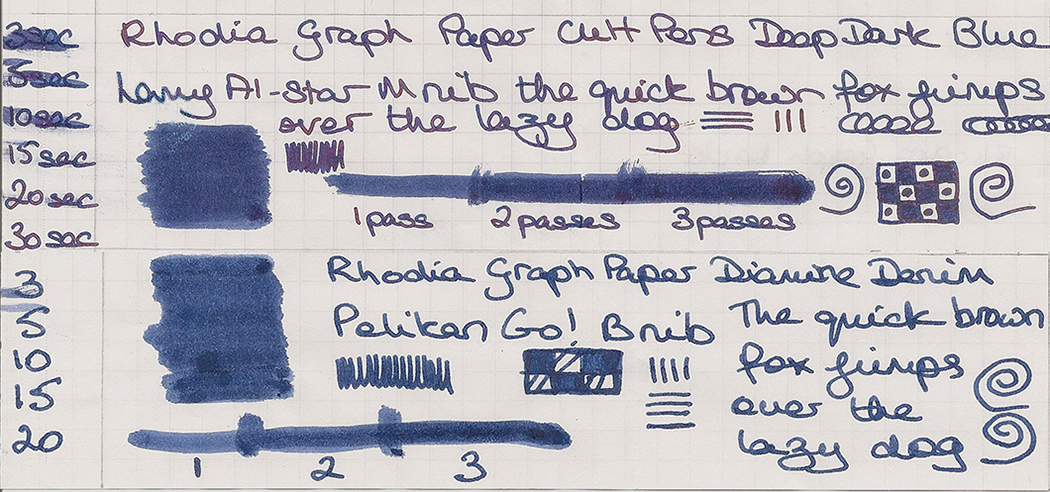 3sec
5sec
10sec
15sec
20sec
30sec
Rhodia Graph Paper Cult Pens Deep Dark Blue
Lamy Al-star M nib the quick brown fox jumps
over the lazy dog
1 pass 2 passes 3 passes
3
5
10
15
20
Rhodia Graph Paper Diamine Denim
Pelikan Go! B nib
The quick brown
fox jumps
over the
lazy dog
1 2 3